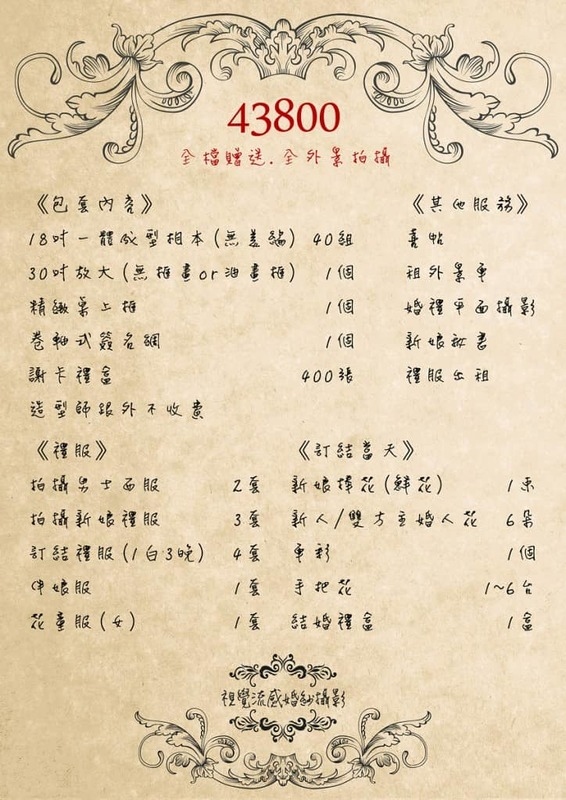 43800
全檔贈送.全外景拍攝
《包套內容》
18吋一體成型相本(無差編) 40組
30吋放大(無框畫or油畫框) 1個
精緻桌上框 1個
卷軸式簽名綢 1個
謝卡禮盒 400張
造型師跟外不收費
《其他服務》
喜帖
租外景車
婚禮平面攝影
新娘秘書
禮服出租
《禮服》
拍攝男士西服 2套
拍攝新娘禮服 3套
訂結禮服(1白3晚) 4套
伴娘服 1套
花童服(女) 1套
《訂結當天》
新娘捧花(鮮花) 1束
新人/雙方主婚人花 6朵
車彩 1個
手把花 1~6台
結婚禮盒 1盒
視覺流感婚紗攝影